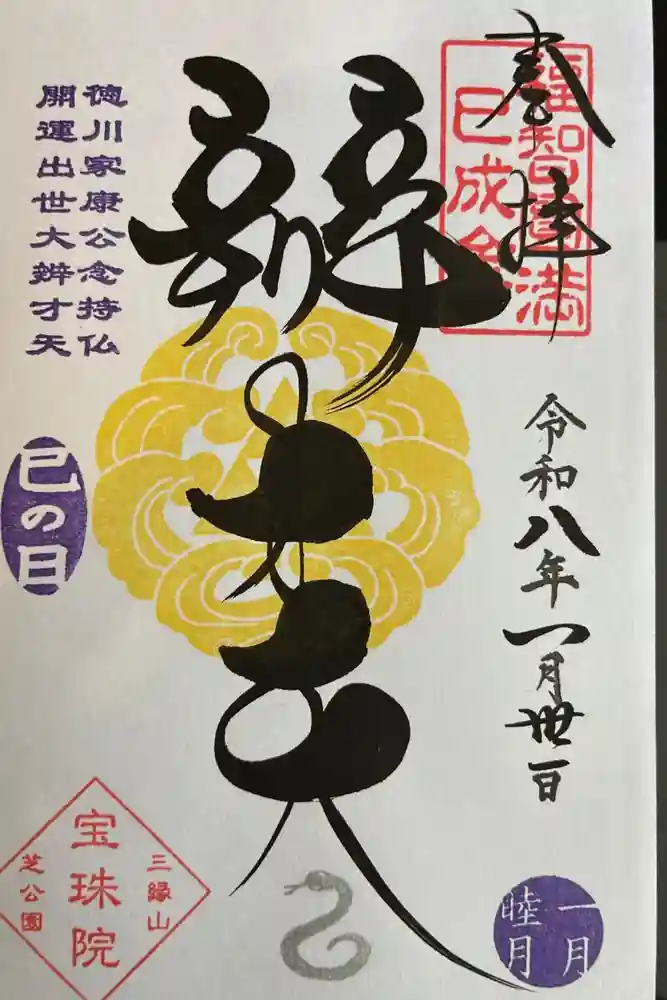 奉拝
福智圓満
巳成金
令和八年一月卅一日
辨才天
徳川家康公念持仏
開運出世大辨才天
巳の日
三縁山
宝珠院
芝公園
一月
睦月